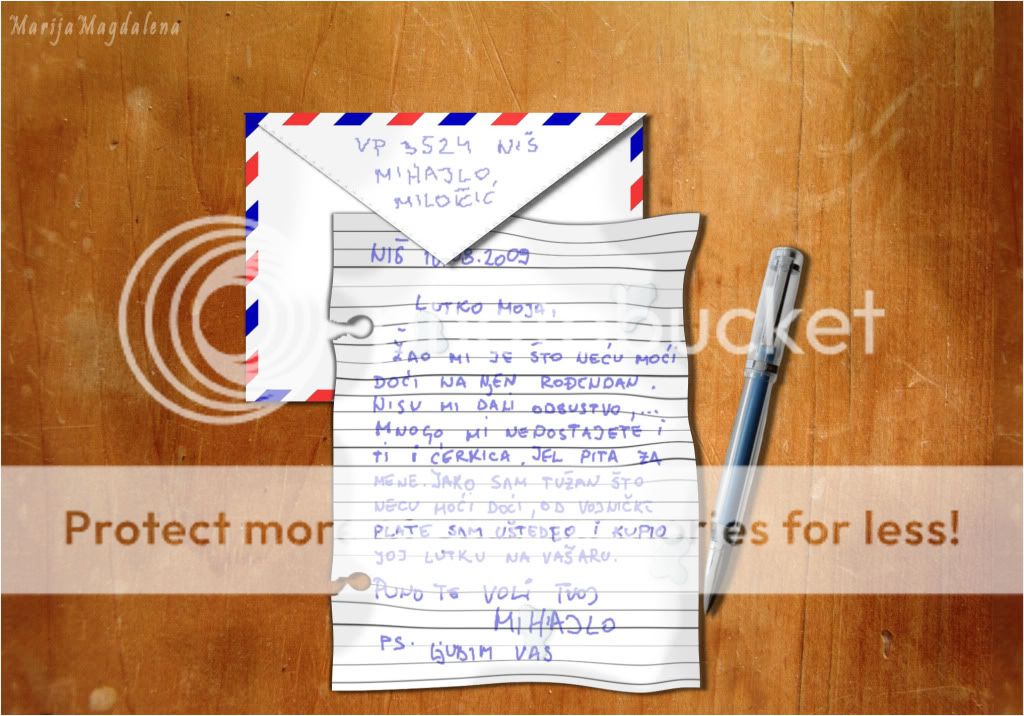 MarijaMagdalena
VP 3524 NIŠ
MIHAJLO
NIŠ 2009
LUTKO MOJA,
ŽAO MI JE ŠTO NEĆU MOĆI
DOĆI NA NJEN ROĐENDAN.
NISU MI DALI ODBUSTVO,...
MNOGO MI NEDOSTAJETE I
TI I ĆERKICA, JEL PITA ZA
MENE. JAKO SAM TUŽAN ŠTO
NEĆU MOĆI DOĆI, OD VOJNIČKE
PLATE SAM UŠTEDEO I KUPIO
JOJ LUTKU NA VAŠARU.
PUNO TE VOLI TVOJ
MIHAJLO
PS. LJUBIM VAS
bucket
Protect mor ries for less!